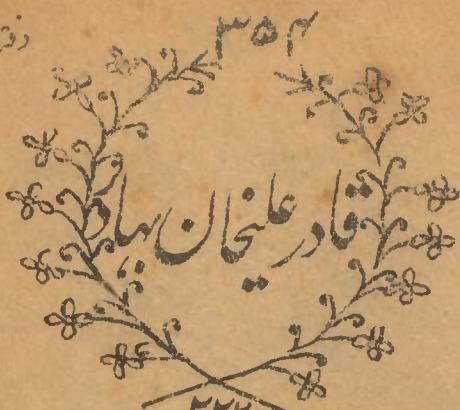 ۳۵۴
قادر علیخان بہادر
۲۲۲